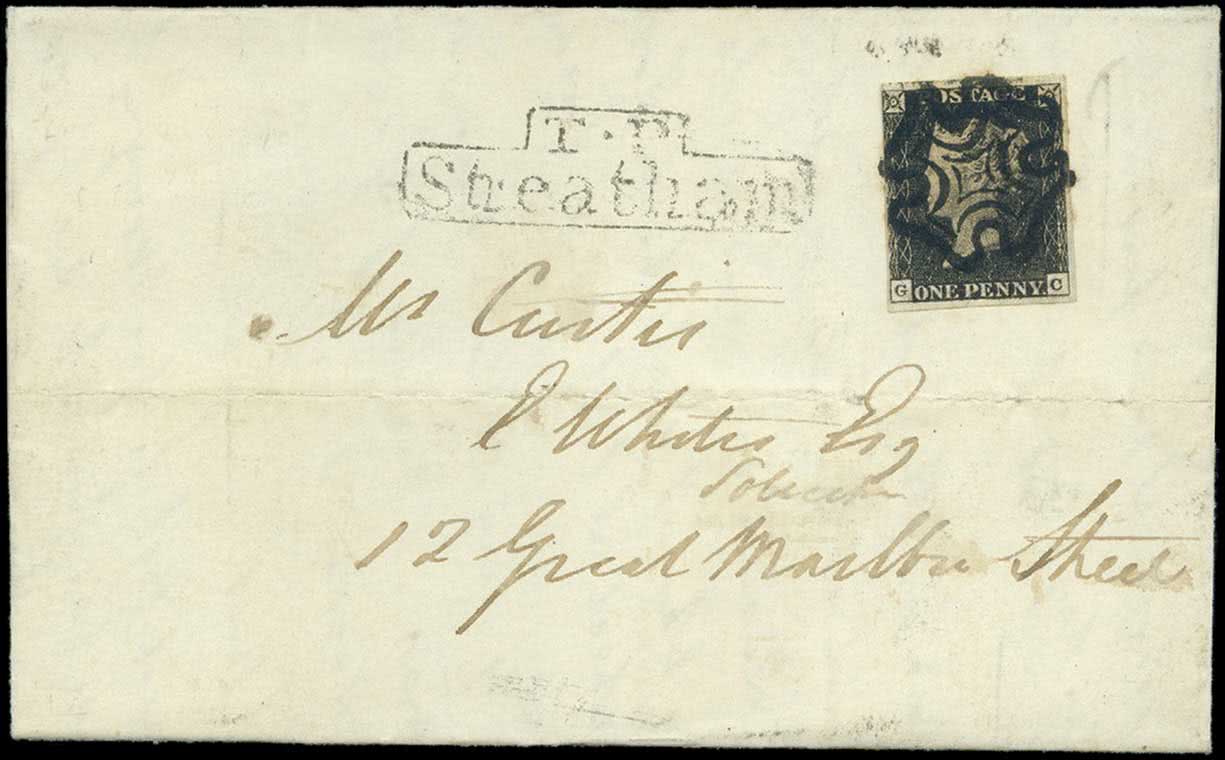 POSTAGE
T.P
Streatham
G ONE PENNY C
Mr Curtis
E Whites Esq
12 Great Marlbro Street